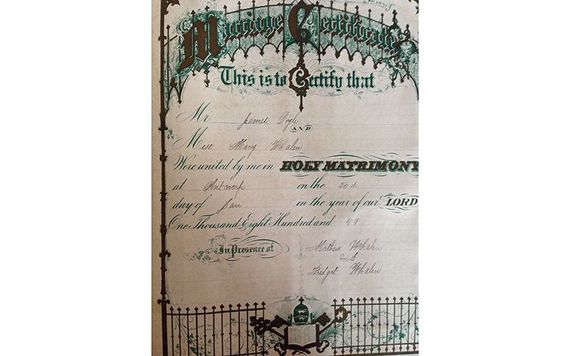 Marriage Certificate
This is to Certify that
Mr James Doyle
AND
Miss Mary Whalen
Were united by me in HOLY MATRIMONY
at Antwerp on the 20 d
day of Jan in the year of our LORD
One Thousand Eight Hundred and 49
In Presence of
Mathew Whalen
and
Bridget Whalen